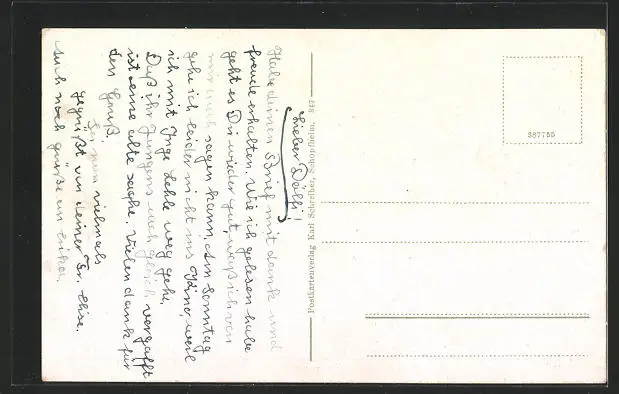 Lieber Dölfi!
Habe deinen Brief mit dank und
freude erhalten. Wie ich gelesen habe
geht es Dir wieder gut, was ich von
mir auch sagen kann. Am Sonntag
gehe ich leider nicht ins Kino, weil
ich mit Inge Lehle weg gehe.
Daß ihr Jungens euch gleich vergafft
ist eine alte sache. Vielen dank für
den Gruß.
Sei nun vielmals
gegrüßt von deiner Fr. Elise.
auch noch grüße an erika.
Postkartenverlag Karl Schreiber, Schopfheim. 347
387755